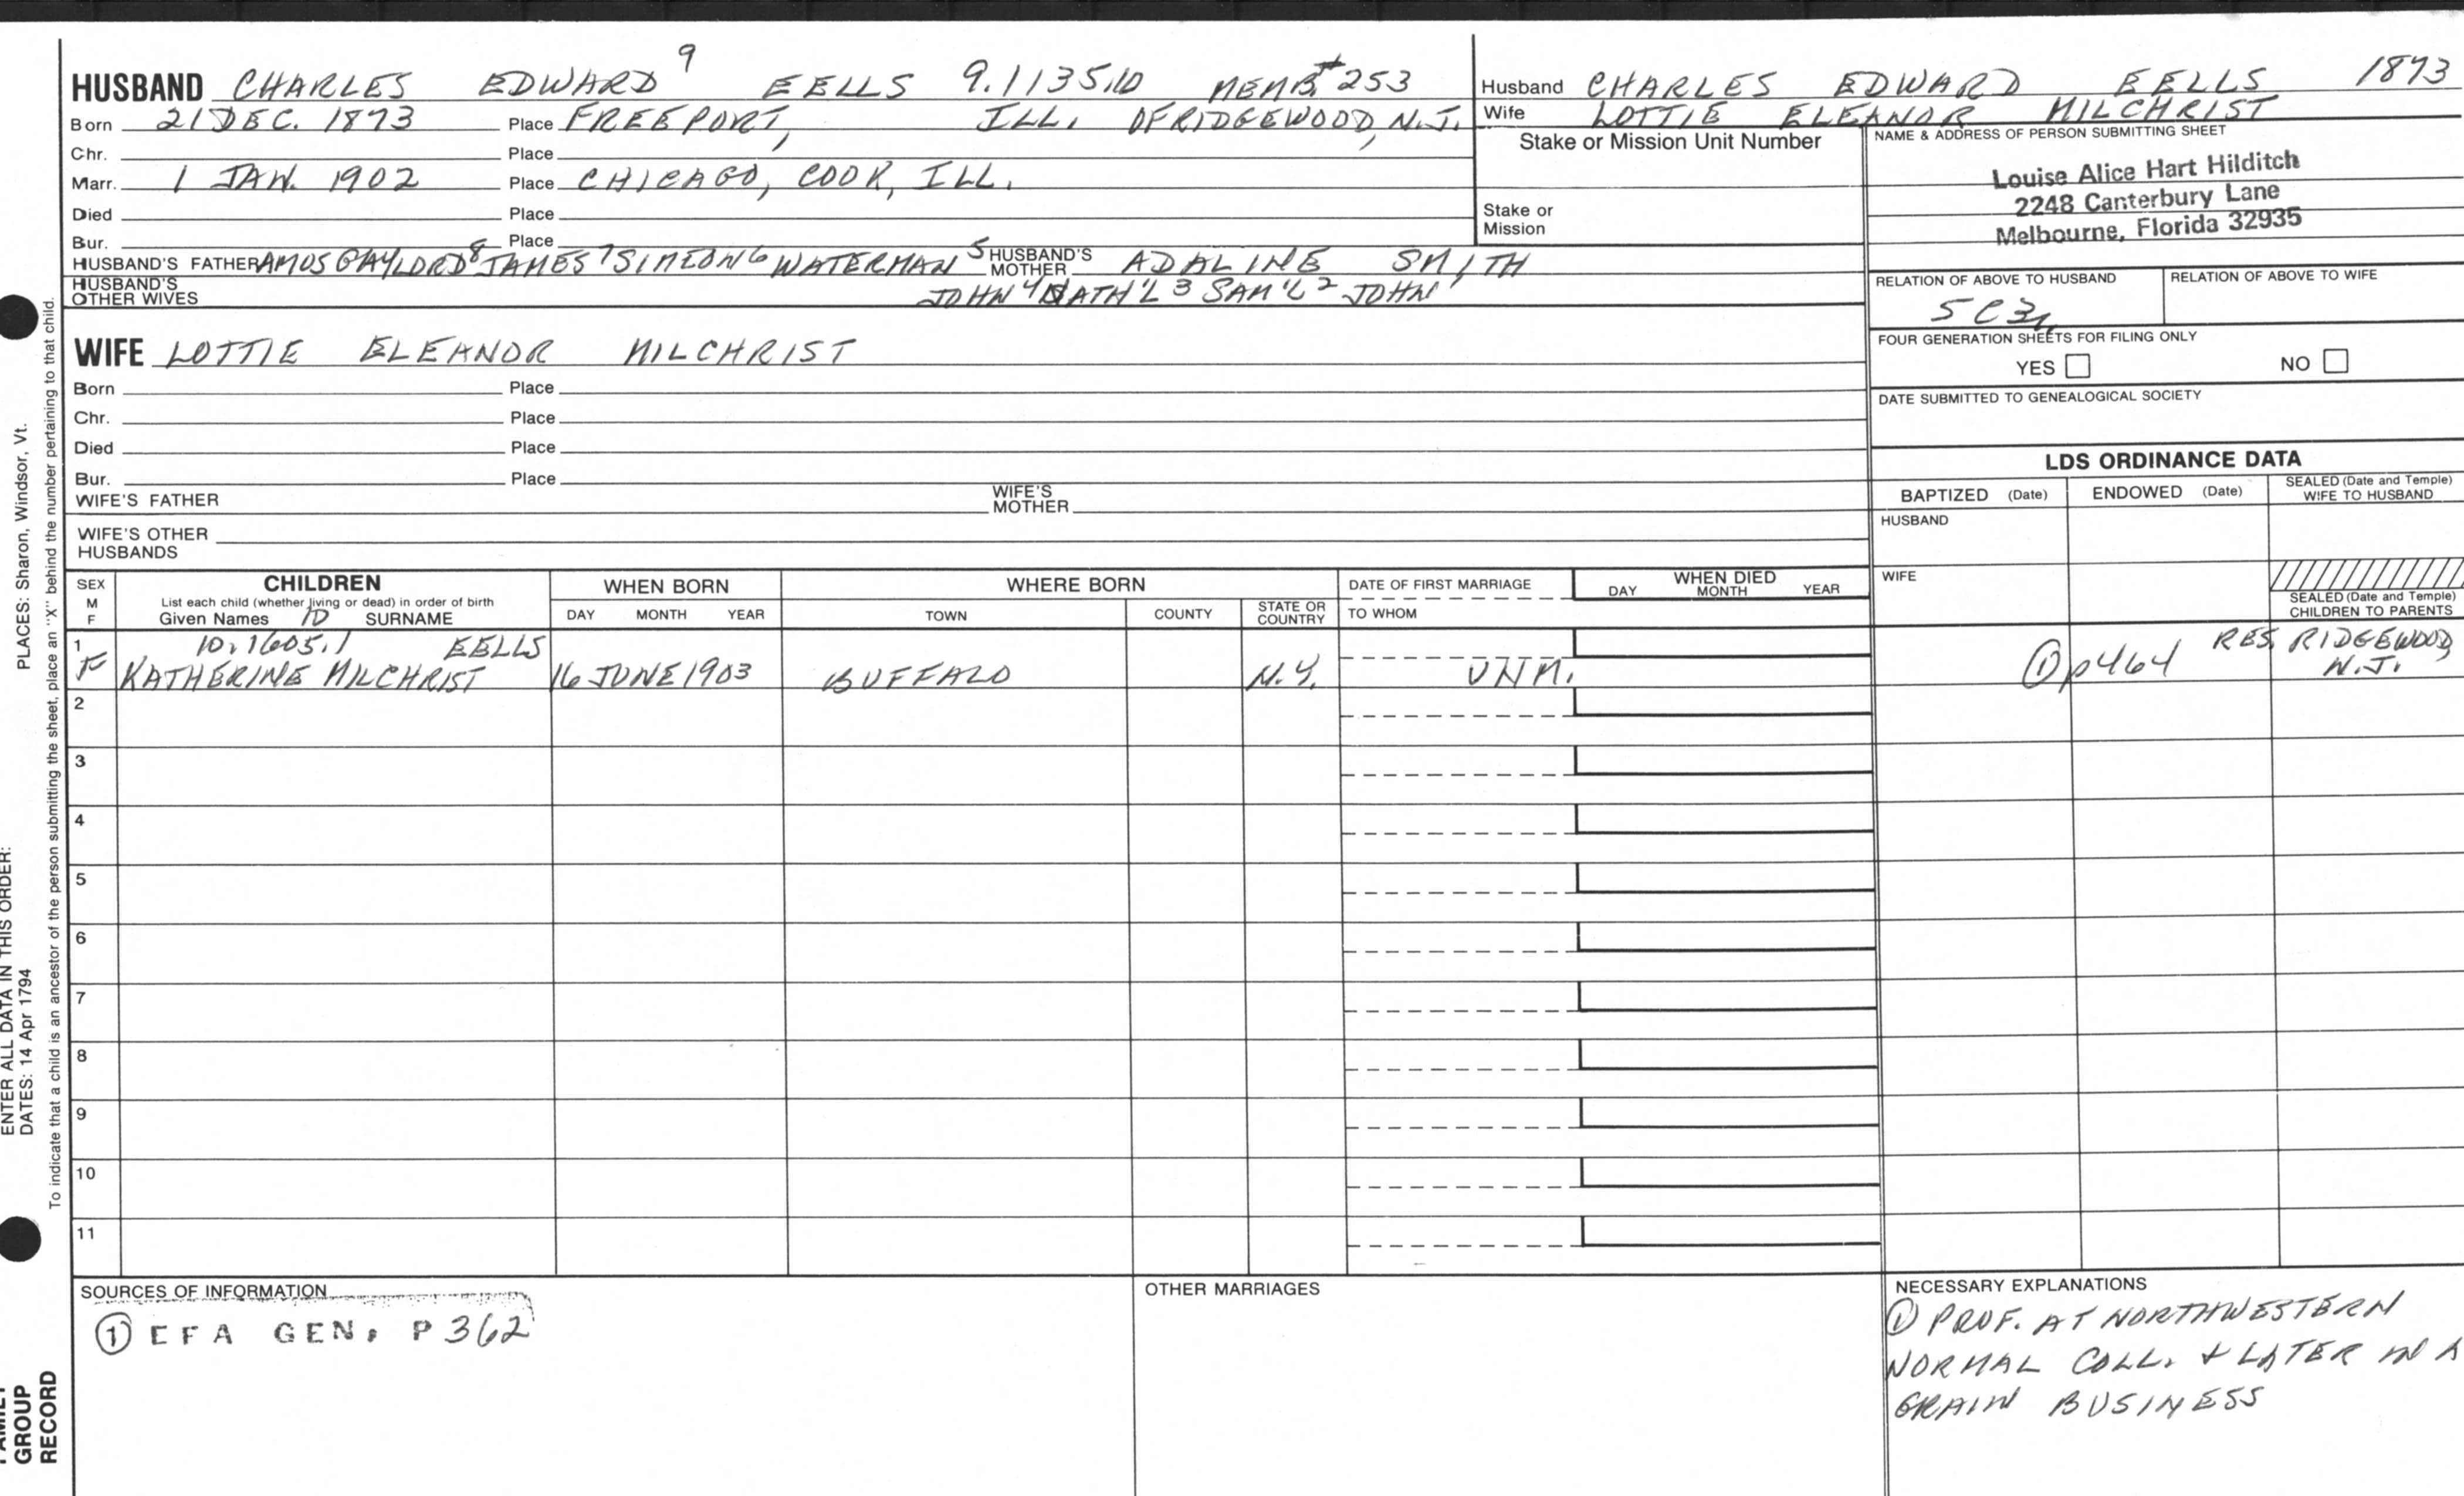 HUSBAND CHARLES EDWARD 9 EELLS 9.1135.10 MEMB. # 253
Born 21 DEC. 1873 Place FREEPORT, ILL. OF RIDGEWOOD, N.J.
Chr. Place
Marr. 1 JAN. 1902 Place CHICAGO, COOK, ILL.
Died Place
Bur. Place
HUSBAND'S FATHER AMOS GAYLORD 8 JAMES 7 SIMEON 6 WATERMAN 5 HUSBAND'S MOTHER ADALINE SMITH
HUSBAND'S OTHER WIVES JOHN 4 NATH'L 3 SAM'L 2 JOHN 1
WIFE LOTTIE ELEANOR MILCHRIST
Born Place
Chr. Place
Died Place
Bur. Place
WIFE'S FATHER WIFE'S MOTHER
WIFE'S OTHER HUSBANDS
Husband CHARLES EDWARD EELLS 1873
Wife LOTTIE ELEANOR MILCHRIST
Stake or Mission Unit Number
Stake or
Mission
NAME & ADDRESS OF PERSON SUBMITTING SHEET
Louise Alice Hart Hilditch
2248 Canterbury Lane
Melbourne, Florida 32935
RELATION OF ABOVE TO HUSBAND RELATION OF ABOVE TO WIFE
5C3r
FOUR GENERATION SHEETS FOR FILING ONLY
YES NO
DATE SUBMITTED TO GENEALOGICAL SOCIETY
LDS ORDINANCE DATA
BAPTIZED (Date) ENDOWED (Date) SEALED (Date and Temple) WIFE TO HUSBAND
HUSBAND
WIFE
SEALED (Date and Temple)
CHILDREN TO PARENTS
SEX M F
CHILDREN
List each child (whether living or dead) in order of birth
Given Names 10 SURNAME
WHEN BORN
DAY MONTH YEAR
WHERE BORN
TOWN COUNTY STATE OR COUNTRY
DATE OF FIRST MARRIAGE
TO WHOM
WHEN DIED
DAY MONTH YEAR
1 10.1605.1 EELLS RES. RIDGEWOOD,
F KATHERINE MILCHRIST 16 JUNE 1903 BUFFALO N.Y. UNM. ① p464 N.J.
2
3
4
5
6
7
8
9
10
11
SOURCES OF INFORMATION
① EFA GEN. P 362
OTHER MARRIAGES
NECESSARY EXPLANATIONS
① PROF. AT NORTHWESTERN
NORMAL COLL. + LATER IN A
GRAIN BUSINESS
PLACES: Sharon, Windsor, Vt.
ENTER ALL DATA IN THIS ORDER:
DATES: 14 Apr 1794
To indicate that a child is an ancestor of the person submitting the sheet, place an "X" behind the number pertaining to that child.
FAMILY
GROUP
RECORD